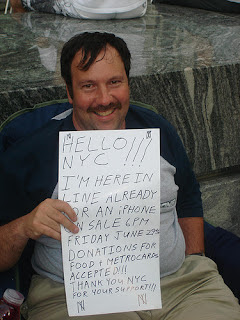 HELLO
NYC!!!
I'M HERE IN
LINE ALREADY
FOR AN IPHONE
ON SALE 6PM
FRIDAY JUNE 29TH
DONATIONS FOR
FOOD & METROCARDS
ACCEPTED!!!
THANK YOU NYC
FOR YOUR SUPPORT!!!